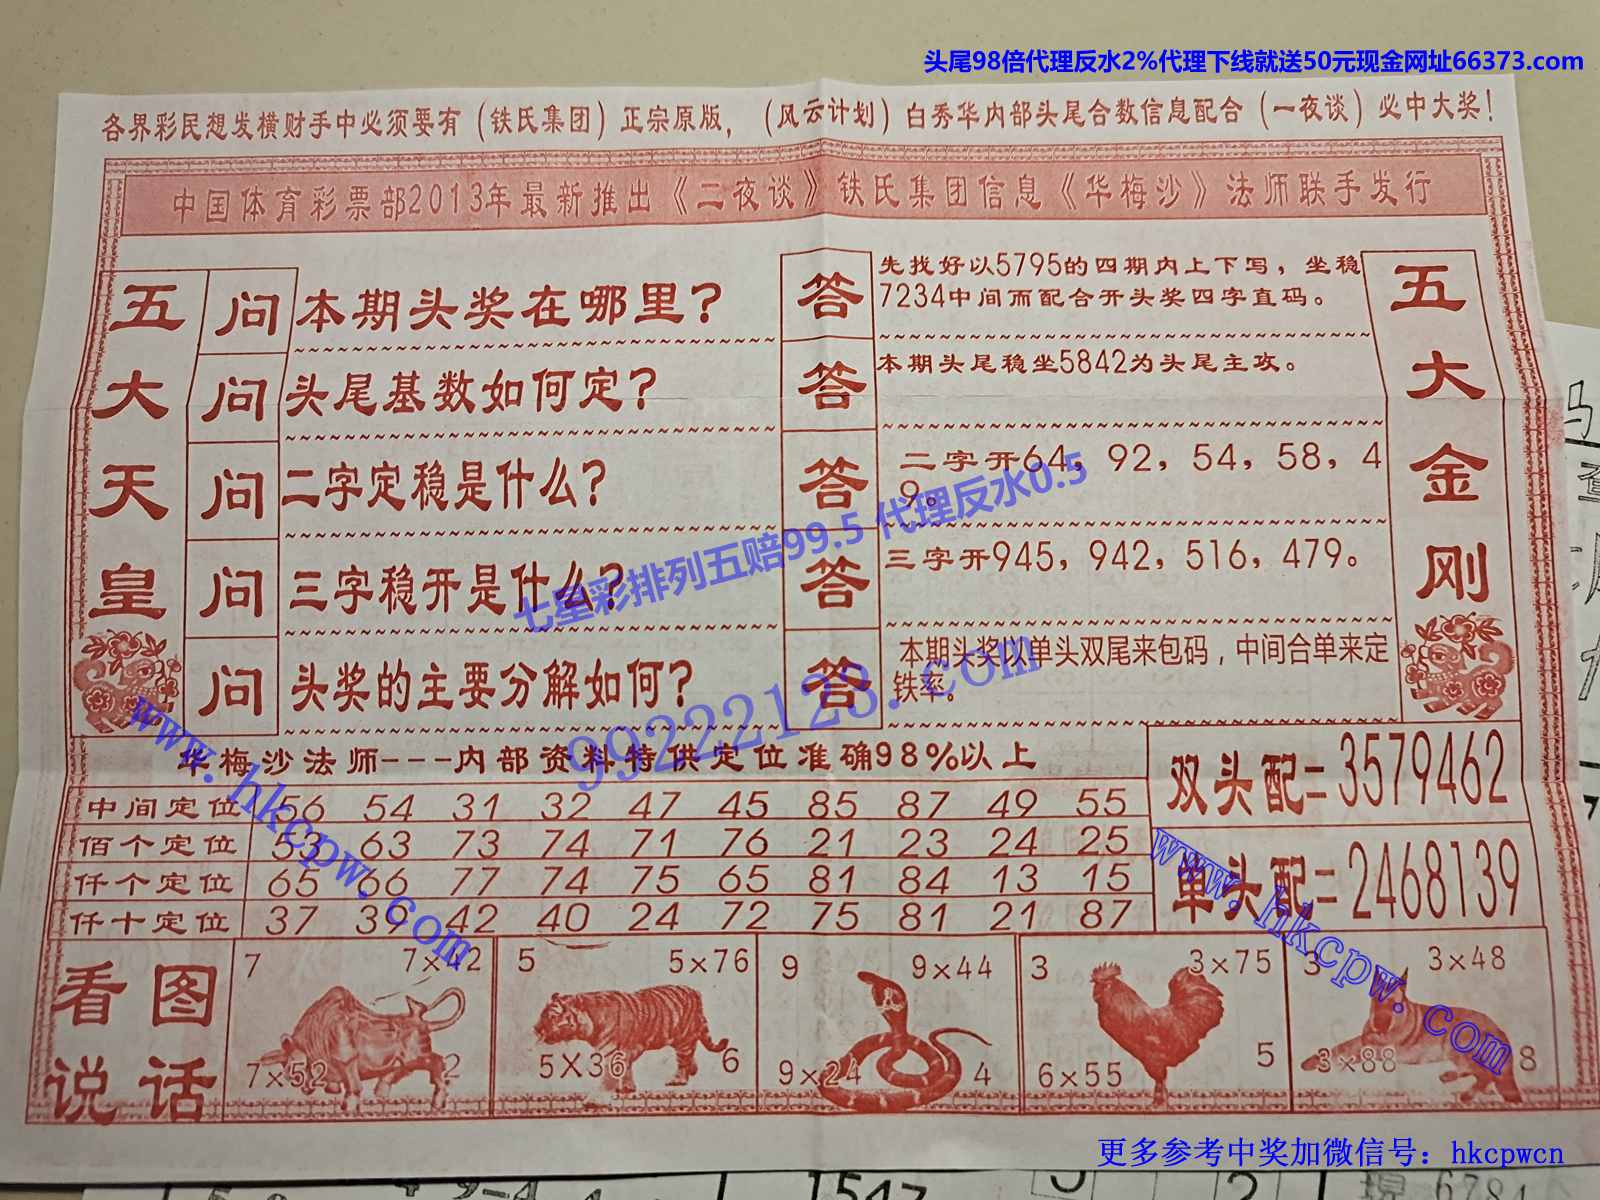 头尾98倍代理反水2%代理下线就送50元现金网址66373.com
各界彩民想发横财手中必须要有（铁氏集团）正宗原版，（风云计划）白秀华内部头尾合数信息配合（一夜谈）必中大奖！
中国体育彩票部2013年最新推出《二夜谈》铁氏集团信息《华梅沙》法师联手发行
五大天皇
问 本期头奖在哪里？
答 先找好以5795的四期内上下写，坐稳
7234中间而配合开头奖四字直码。
问 头尾基数如何定？
答 本期头尾稳坐5842为头尾主攻。
问 二字定稳是什么？
答 二字开64，92，54，58，4
9。
问 三字稳开是什么？
答 三字开945，942，516，479。
问 头奖的主要分解如何？
答 本期头奖以单头双尾来包码，中间合单来定
铁率。
五大金刚
七星彩排列五赔99.5 代理反水0.5
99222128.com
www.hkcpw.com
华梅沙法师---内部资料特供定位准确98%以上
中间定位 56 54 31 32 47 45 85 87 49 55
佰个定位 53 63 73 74 71 76 21 23 24 25
仟个定位 65 66 77 74 75 65 81 84 13 15
仟十定位 37 39 42 40 24 72 75 81 21 87
双头配=3579462
单头配=2468139
www.hkcpw.com
看图
说话
7 7×42
7×52 2
5 5×76
5×36 6
9 9×44
9×24 4
3 3×75
6×55 5
3 3×48
3×88 8
更多参考中奖加微信号：hkcpwcn
1547
6784